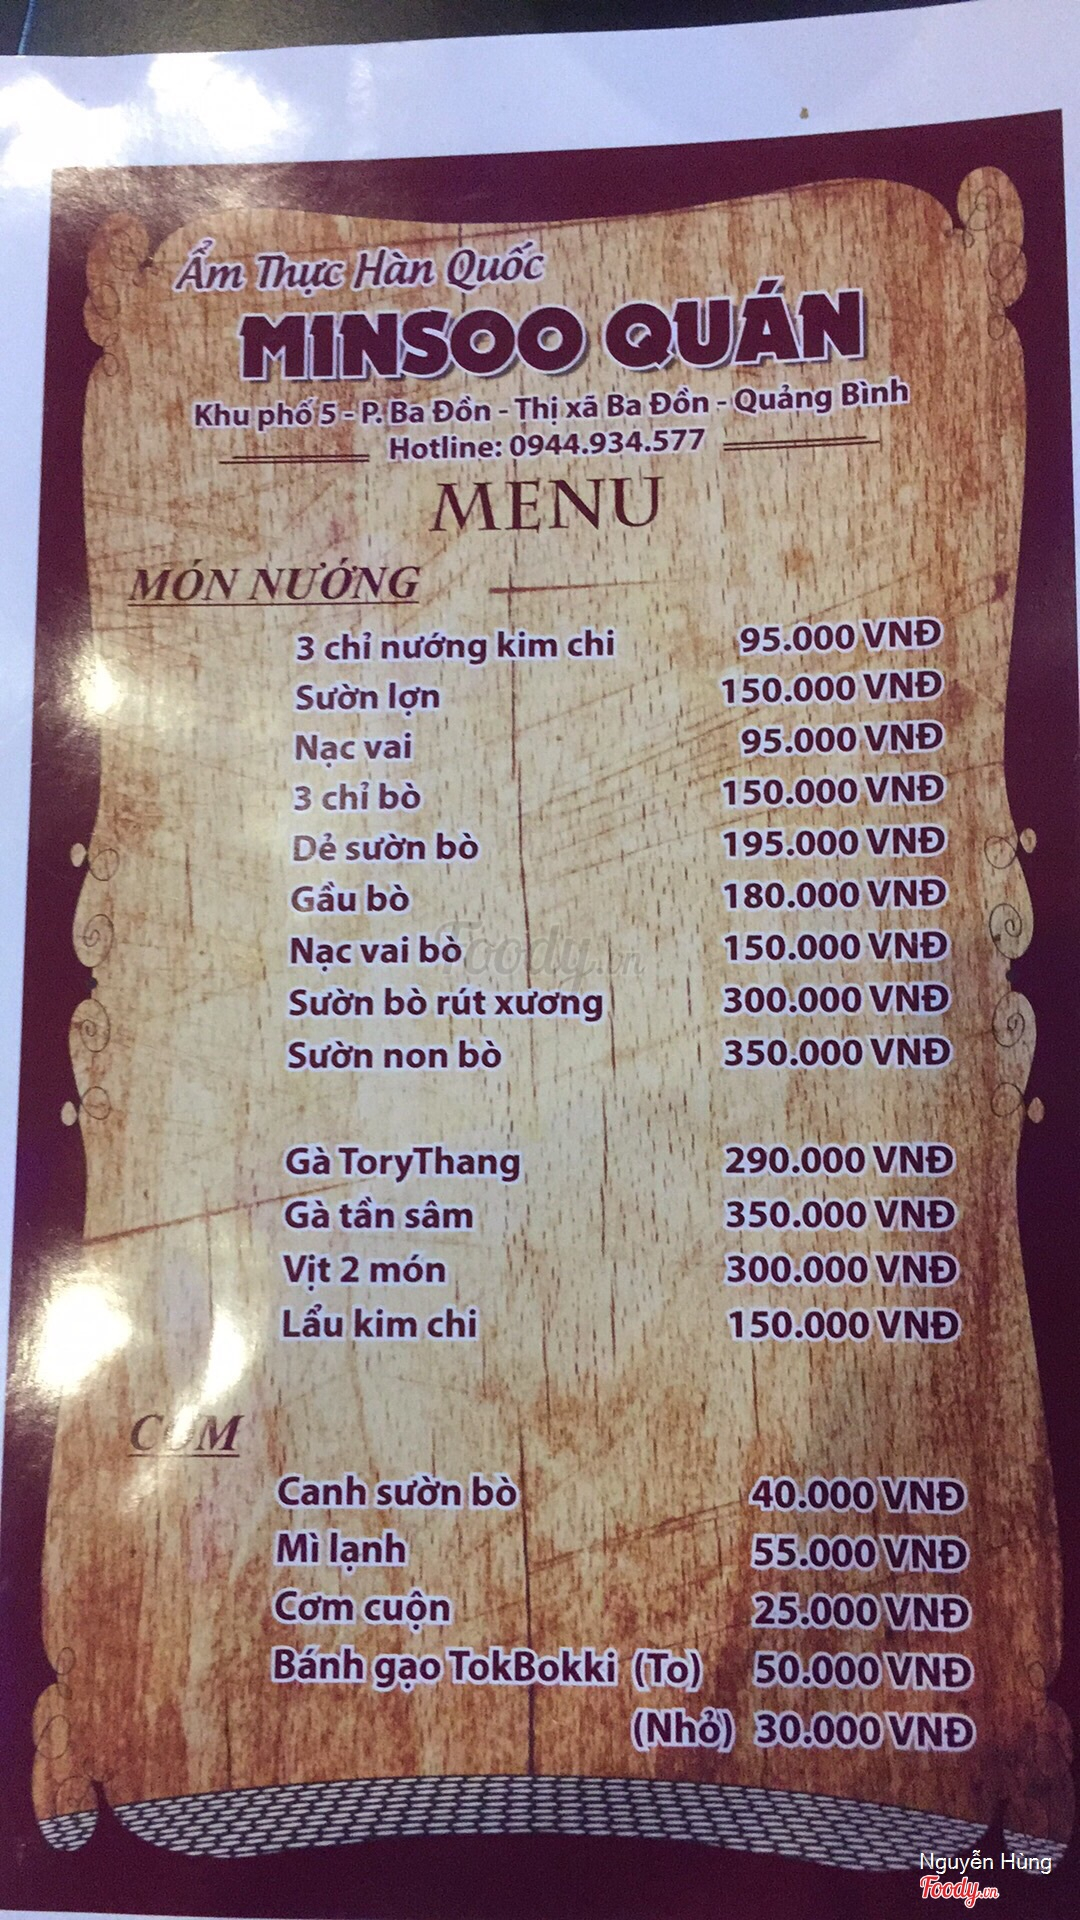 Ẩm Thực Hàn Quốc
MINSOO QUÁN
Khu phố 5 - P. Ba Đồn - Thị xã Ba Đồn - Quảng Bình
Hotline: 0944.934.577
MENU
MÓN NƯỚNG
3 chỉ nướng kim chi 95.000 VNĐ
Sườn lợn 150.000 VNĐ
Nạc vai 95.000 VNĐ
3 chỉ bò 150.000 VNĐ
Dẻ sườn bò 195.000 VNĐ
Gầu bò 180.000 VNĐ
Nạc vai bò 150.000 VNĐ
Foody.vn
Sườn bò rút xương 300.000 VNĐ
Sườn non bò 350.000 VNĐ
Gà ToryThang 290.000 VNĐ
Gà tần sâm 350.000 VNĐ
Vịt 2 món 300.000 VNĐ
Lẩu kim chi 150.000 VNĐ
CƠM
Canh sườn bò 40.000 VNĐ
Mì lạnh 55.000 VNĐ
Cơm cuộn 25.000 VNĐ
Bánh gạo TokBokki (To) 50.000 VNĐ
(Nhỏ) 30.000 VNĐ
Nguyễn Hùng
Foody.vn